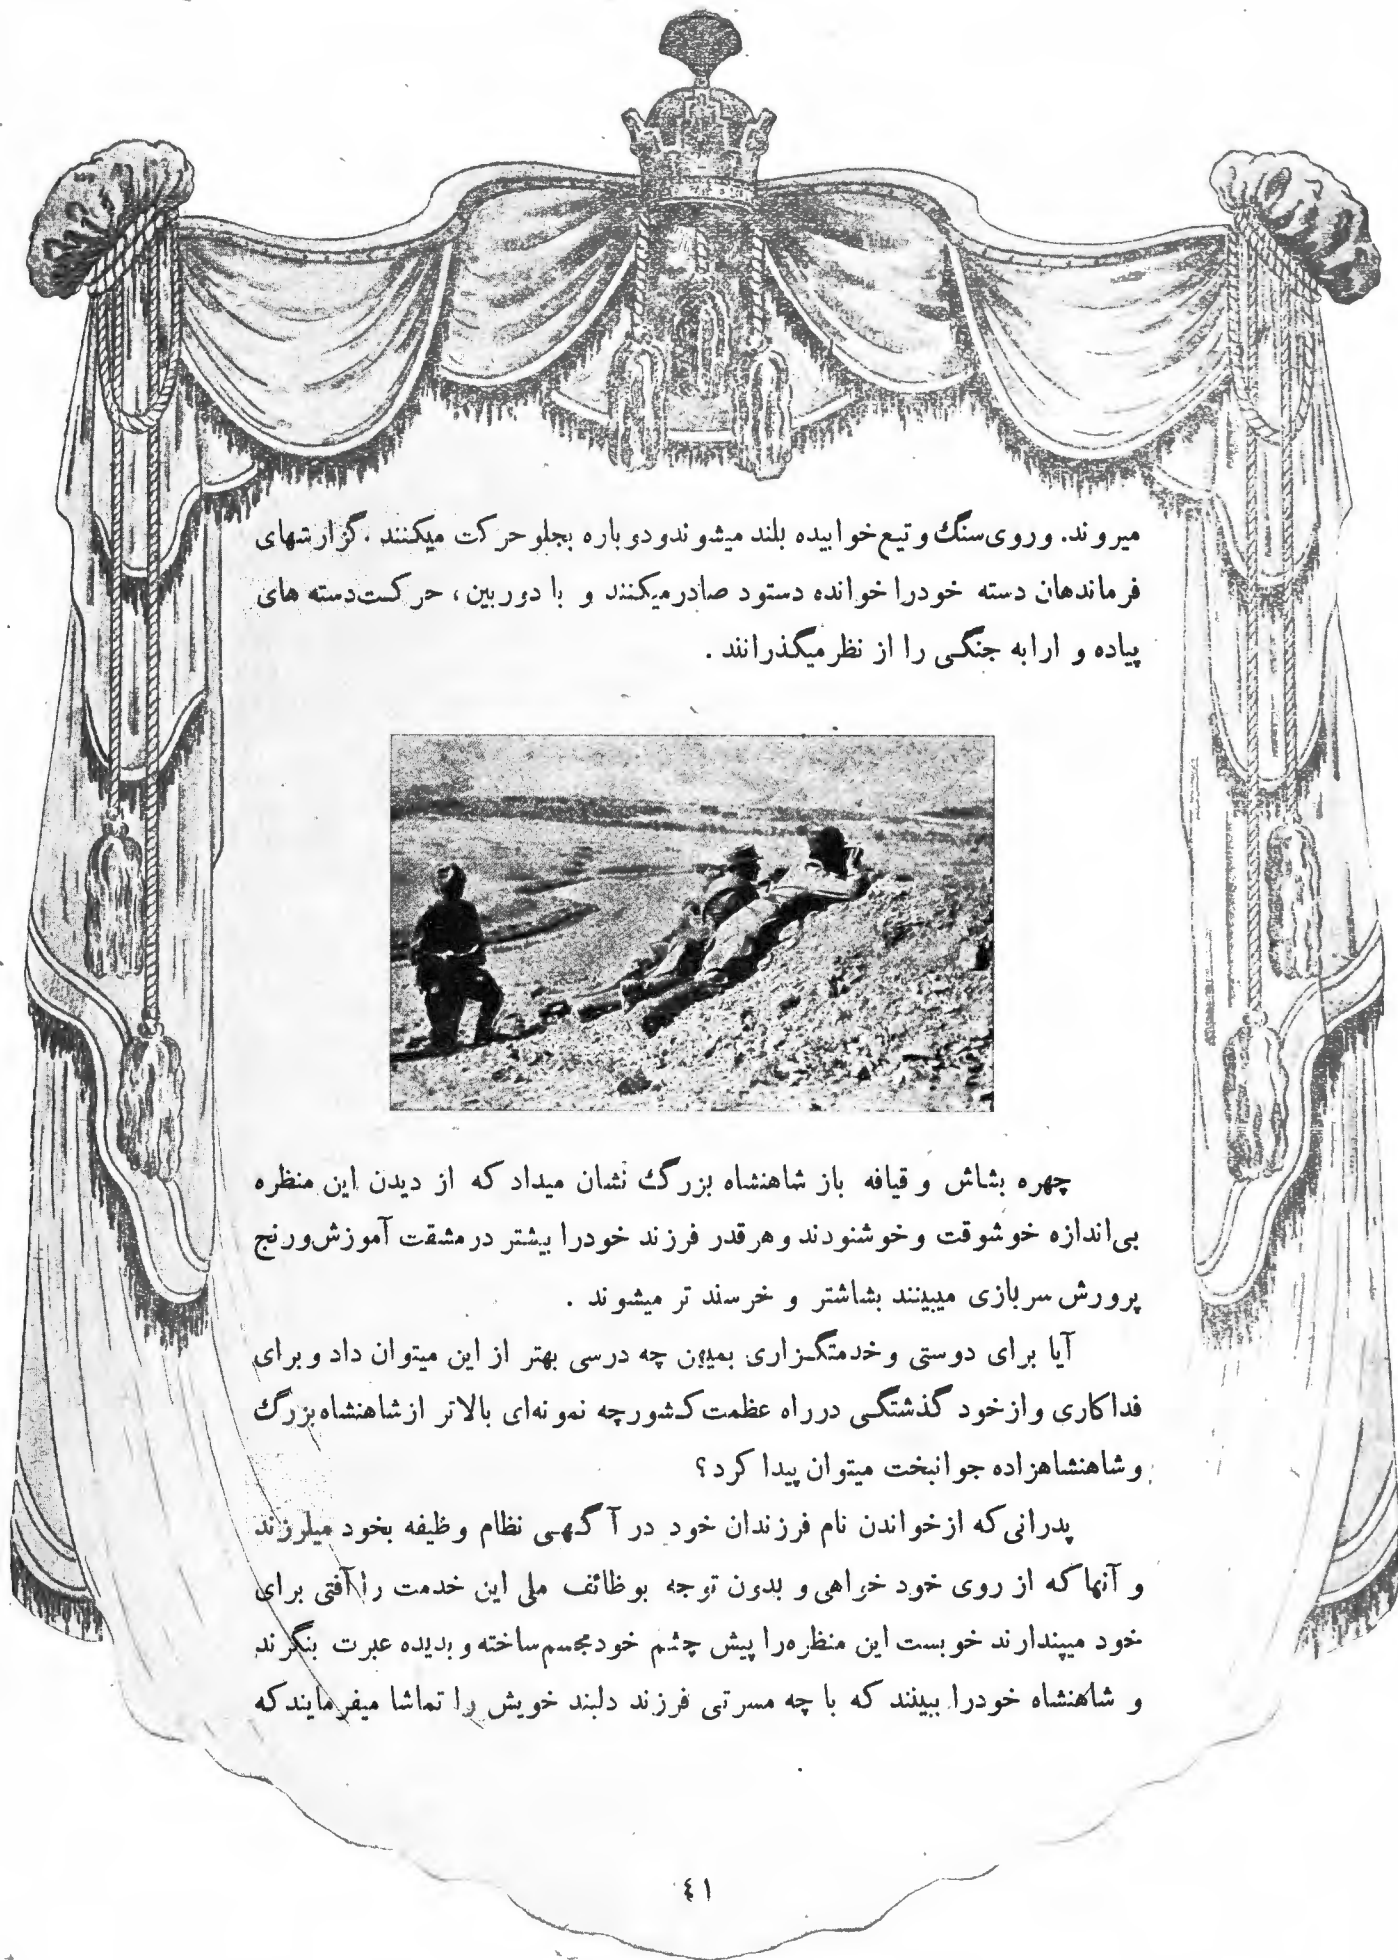 میروند. وروی سنگ و تیغ خوابیده بلند میشوند ودوباره بجلو حرکت میکنند . گزارشهای
فرماندهان دسته خودرا خوانده دستود صادر میکنند و با دوربین، حرکت دسته های
پیاده و ارابه جنگی را از نظر میگذرانند .
چهره بشاش و قیافه باز شاهنشاه بزرگ نشان میداد که از دیدن این منظره
بی‌اندازه خوشوقت و خوشنودند و هرقدر فرزند خودرا بیشتر در مشقت آموزش ورنج
پرورش سربازی میبینند بشاشتر و خرسند تر میشوند .
آیا برای دوستی و خدمتگزاری بمیهن چه درسی بهتر از این میتوان داد و برای
فداکاری و ازخود گذشتگی در راه عظمت کشور چه نمونه‌ای بالاتر از شاهنشاه بزرگ
و شاهنشاهزاده جوانبخت میتوان پیدا کرد؟
پدرانی که ازخواندن نام فرزندان خود در آگهی نظام وظیفه بخود میلرزند
و آنها که از روی خود خواهی و بدون توجه بوظائف ملی این خدمت را آفتی برای
خود میپندارند خوبست این منظره را پیش چشم خود مجسم ساخته و بدیده عبرت بنگرند
و شاهنشاه خودرا ببینند که با چه مسرتی فرزند دلبند خویش را تماشا میفرمایند که
٤١